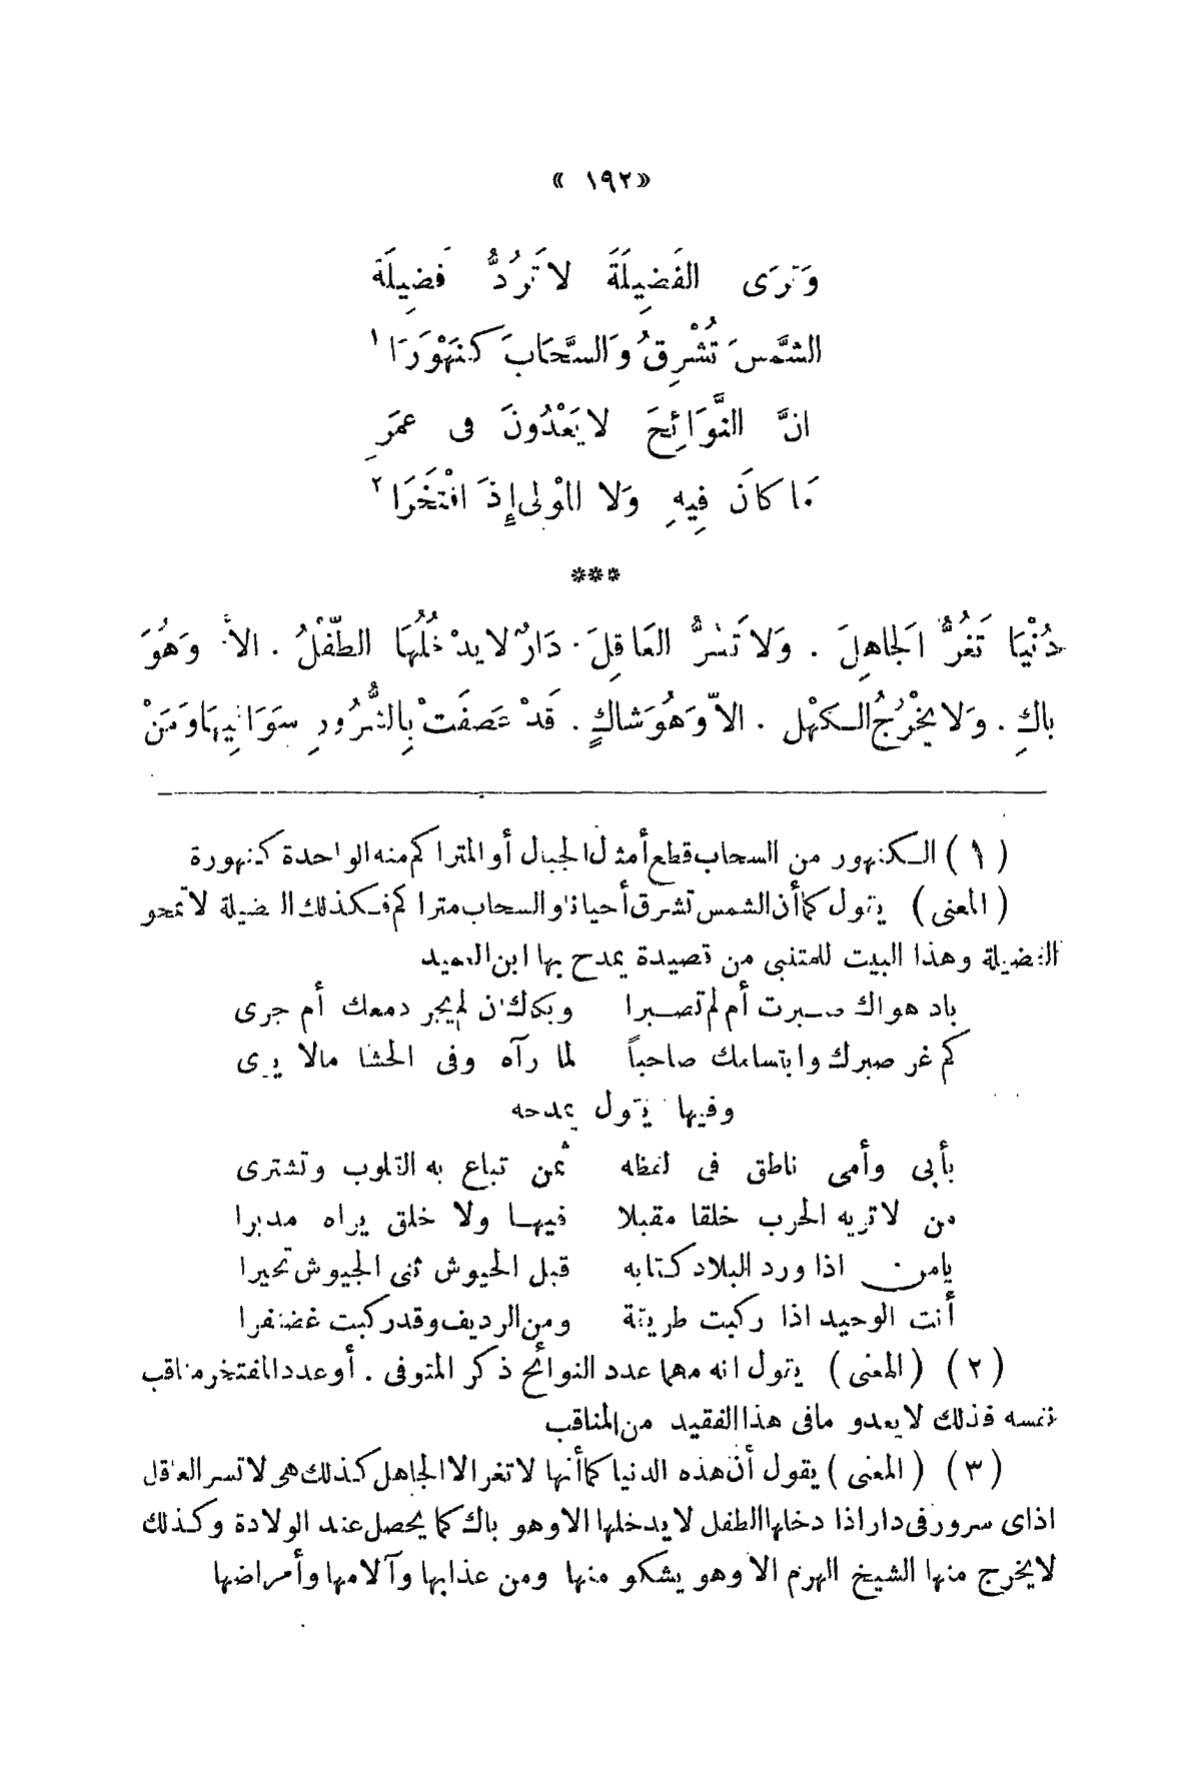 «١٩٢»
وَتَرَى الفَضِيلَةَ لاتَرُدُّ فَضِيلَةً
الشَّمْسَ تُشْرِقُ وَالسَّحَابَ كَنَهْوَرَا ١
انَّ النَّوَائِحَ لا يَعْدُونَ فى عمَرِ
مَا كانَ فِيهِ وَلا المْولى إِذَ افْتَخَرَا ٢
***
دُنْيَا تَغُرُّ الجَاهِلَ . وَلا تَسُرُّ العَاقِلَ . دَارٌ لا يدْخُلُهَا الطّفْلُ . الاّ وَهُوَ
باكِ . وَلا يخْرُجُ الكَهْل . الاّ وَهُوَ شاكٍ . قَدْ عَصَفَتْ بِالشُّرُورِ سَوَافِيهَا وَمَنْ
(١) الكنهور من السحاب قطع أمثال الجبال أو المتراكم منه الواحدة كنهورة
(المعنى) يقول كما أن الشمس تشرق أحيانا والسحاب متراكم فكذلك الفضيلة لا تمحو
الفضيلة وهذا البيت للمتنبى من قصيدة يمدح بها ابن العميد
باد هواك صبرت أم لم تصبرا وبكاك ان لم يجر دمعك أم جرى
كم غر صبرك وابتسامك صاحباً لما رآه وفى الحشا مالا يرى
وفيها يقول يمدحه
بأبى وأمى ناطق فى لفظه ثمن تباع به القلوب وتشترى
من لا تريه الحرب خلقا مقبلا فيها ولا خلق يراه مدبرا
يامن اذا ورد البلاد كتابه قبل الجيوش ثنى الجيوش تحيرا
أنت الوحيد اذا ركبت طريقة ومن الرديف وقد ركبت غضنفرا
(٢) (المعنى) يقول انه مهما عدد النوائح ذكر المتوفى . أو عدد المفتخر مناقب
نفسه فذلك لا يعدو مافى هذا الفقيد من المناقب
(٣) (المعنى) يقول أن هذه الدنيا كما أنها لا تغر الا الجاهل كذلك هى لا تسر العاقل
اذ اى سرور فى دار اذا دخلها الطفل لا يدخلها الا وهو باك كما يحصل عند الولادة وكذلك
لا يخرج منها الشيخ الهرم الا وهو يشكو منها ومن عذابها وآلامها وأمراضها